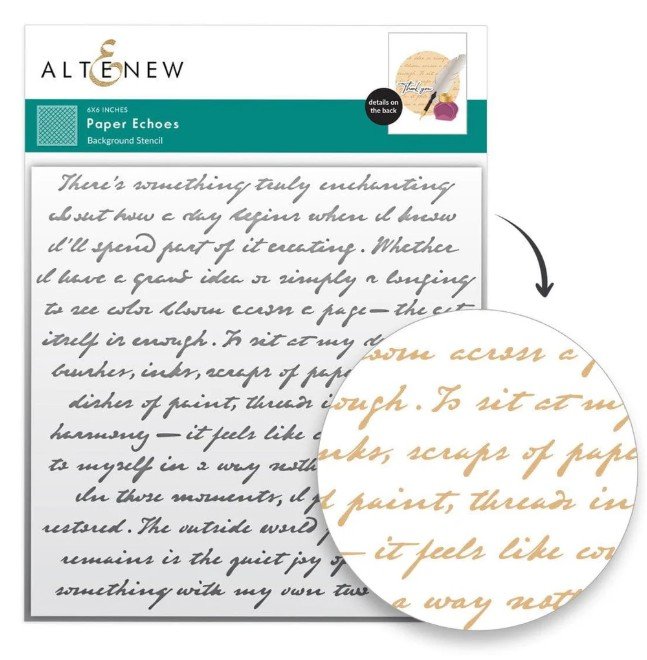 ALTENEW
6X6 INCHES
Paper Echoes
Background Stencil
details on
the back
Thank you
There's something truly enchanting
about how a day begins when I know
I'll spend part of it creating. Whether
I have a grand idea or simply a longing
to see color bloom across a page — the act
itself is enough. To sit at my d
brushes, inks, scraps of pape
dishes of paint, threads i
harmony — it feels like c
to myself in a way noth
In those moments, I f
restored. The outside world
remains is the quiet joy of
something with my own two
loom across a p
ough. To sit at my
nks, scraps of pape
f paint, threads in
— it feels like co
a way noth